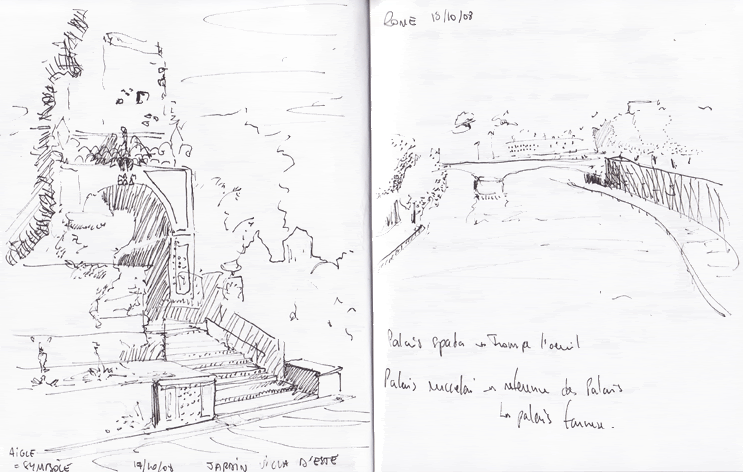 AIGLE
= SYMBOLE
19/10/08 JARDIN VILLA D'ESTE
ROME 18/10/08
Palais spada → Trompe l'oeuil
Palais ruccelai → référence des Palais
Le palais farnese.